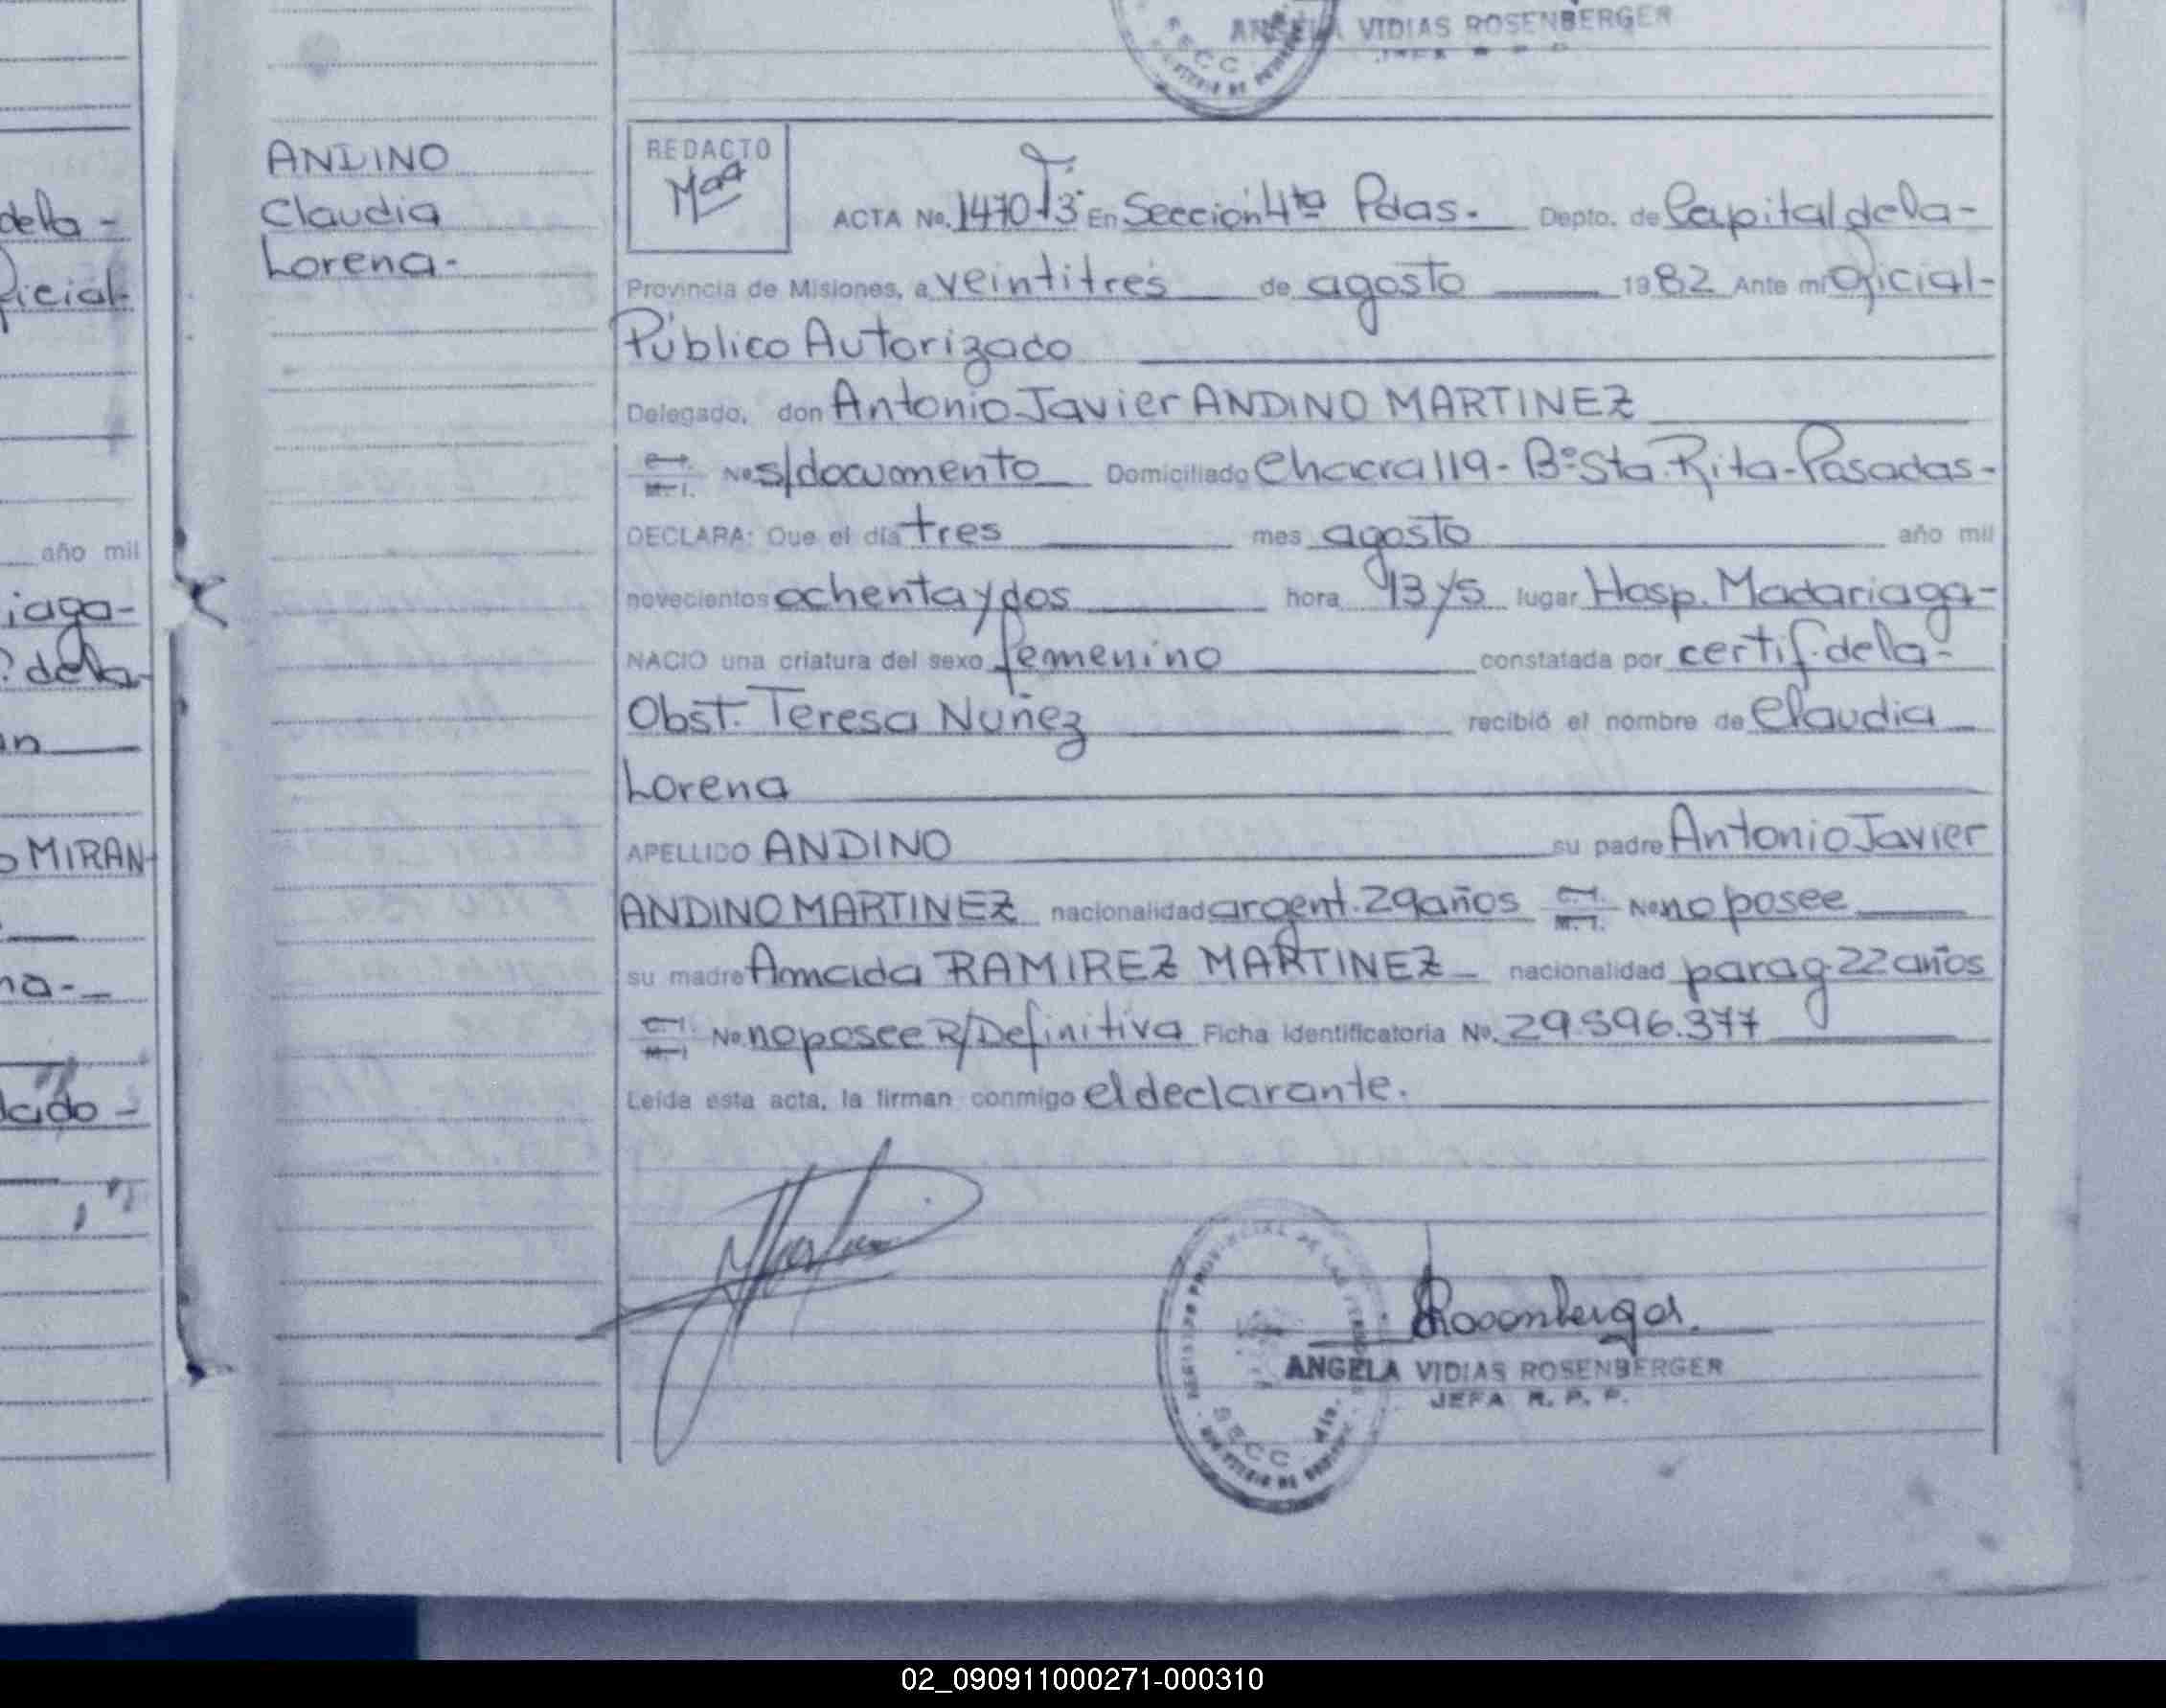 ANGELA VIDIAS ROSENBERGER
SECC
ANDINO
Claudia
Lorena-
REDACTO
ACTA No. 1470 Tº3 En Sección 4ta Pdas. Depto. de Capital dela-
Provincia de Misiones, a veintitrés de agosto 1982 Ante mí Oficial-
Público Autorizado
Delegado, don Antonio Javier ANDINO MARTINEZ
No s/documento Domiciliado Chacra 119 - Bº Sta. Rita - Posadas -
DECLARA: Que el día tres mes agosto año mil
novecientos ochenta y dos hora 13 y 5 lugar Hosp. Madariaga-
NACIO una criatura del sexo femenino constatada por certif. dela-
Obst. Teresa Nuñez recibió el nombre de Claudia
Lorena
APELLIDO ANDINO su padre Antonio Javier
ANDINO MARTINEZ nacionalidad argent. 29 años No no posee
su madre Amada RAMIREZ MARTINEZ nacionalidad parag. 22 años
No no posee R/Definitiva Ficha Identificatoria No. 29.596.377
Leída esta acta, la firman conmigo el declarante.
Rosenberger.
ANGELA VIDIAS ROSENBERGER
JEFA R. P. P.
SECC
dela -
ficial-
año mil
iaga-
dela
MIRAN-
02_090911000271-000310